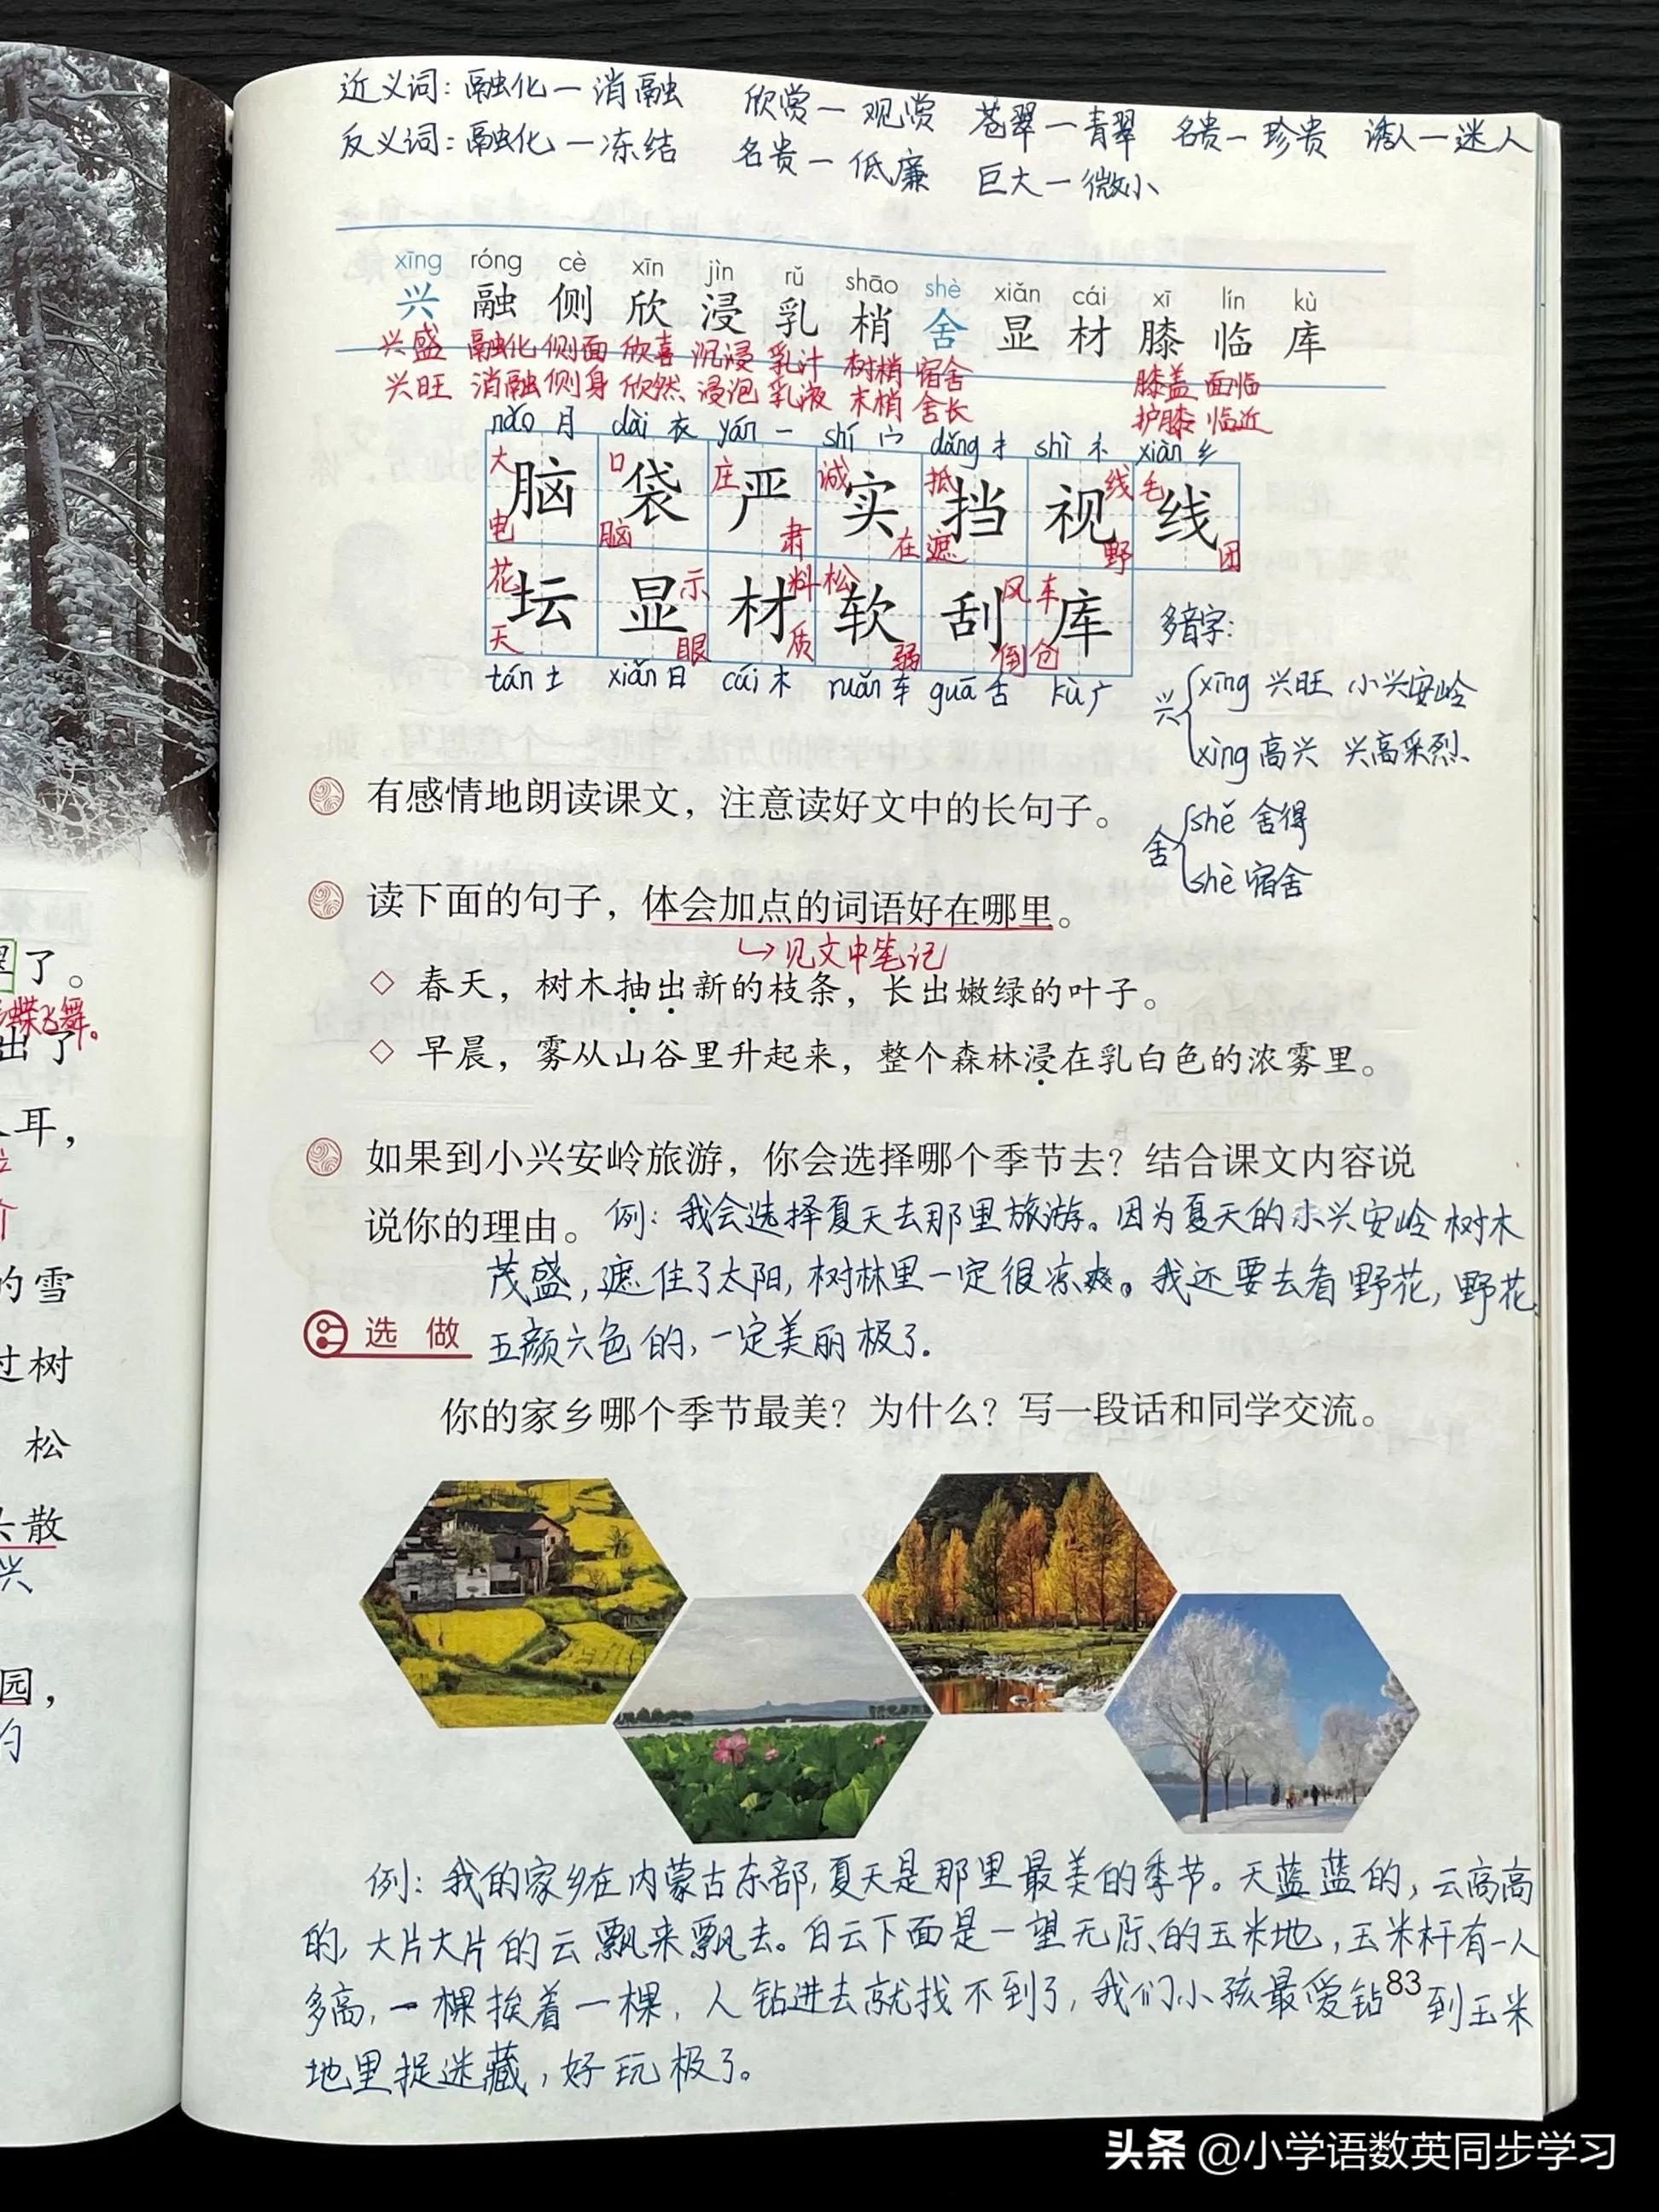 近义词：融化—消融 欣赏—观赏 苍翠—青翠 名贵—珍贵 诱人—迷人
反义词：融化—冻结 名贵—低廉 巨大—微小
xīng róng cè xīn jìn rǔ shāo shè xiǎn cái xī lín kù
兴 融 侧 欣 浸 乳 梢 舍 显 材 膝 临 库
兴盛 融化 侧面 欣喜 沉浸 乳汁 树梢 宿舍 膝盖 面临
兴旺 消融 侧身 欣然 浸泡 乳液 末梢 舍长 护膝 临近
nǎo 月 dài 衣 yán 一 shí 宀 dǎng 扌 shì 礻 xiàn 纟
大 口 庄 诚 抵 线 毛
脑 袋 严 实 挡 视 线
电 脑 肃 在 遮 野 团
花 示 料 松 风 车
坛 显 材 软 刮 库
天 眼 质 弱 倒 仓
tán 土 xiǎn 日 cái 木 ruǎn 车 guā 舌 kù 广
多音字：
兴 xīng 兴旺 小兴安岭
xìng 高兴 兴高采烈
有感情地朗读课文，注意读好文中的长句子。
舍 shě 舍得
shè 宿舍
读下面的句子，体会加点的词语好在哪里。
见文中笔记
春天，树木抽出新的枝条，长出嫩绿的叶子。
早晨，雾从山谷里升起来，整个森林浸在乳白色的浓雾里。
如果到小兴安岭旅游，你会选择哪个季节去？结合课文内容说
说你的理由。例：我会选择夏天去那里旅游。因为夏天的小兴安岭树木
茂盛，遮住了太阳，树林里一定很凉爽。我还要去看野花，野花
选做 五颜六色的，一定美丽极了。
你的家乡哪个季节最美？为什么？写一段话和同学交流。
例：我的家乡在内蒙古东部，夏天是那里最美的季节。天蓝蓝的，云高高
的，大片大片的云飘来飘去。白云下面是一望无际的玉米地，玉米杆有一人
多高，一棵挨着一棵，人钻进去就找不到了，我们小孩最爱钻到玉米
83
地里捉迷藏，好玩极了。
了。
蝶飞舞。
出了
耳，
的雪
过树
松
头散
兴
园，
头条 @小学语数英同步学习